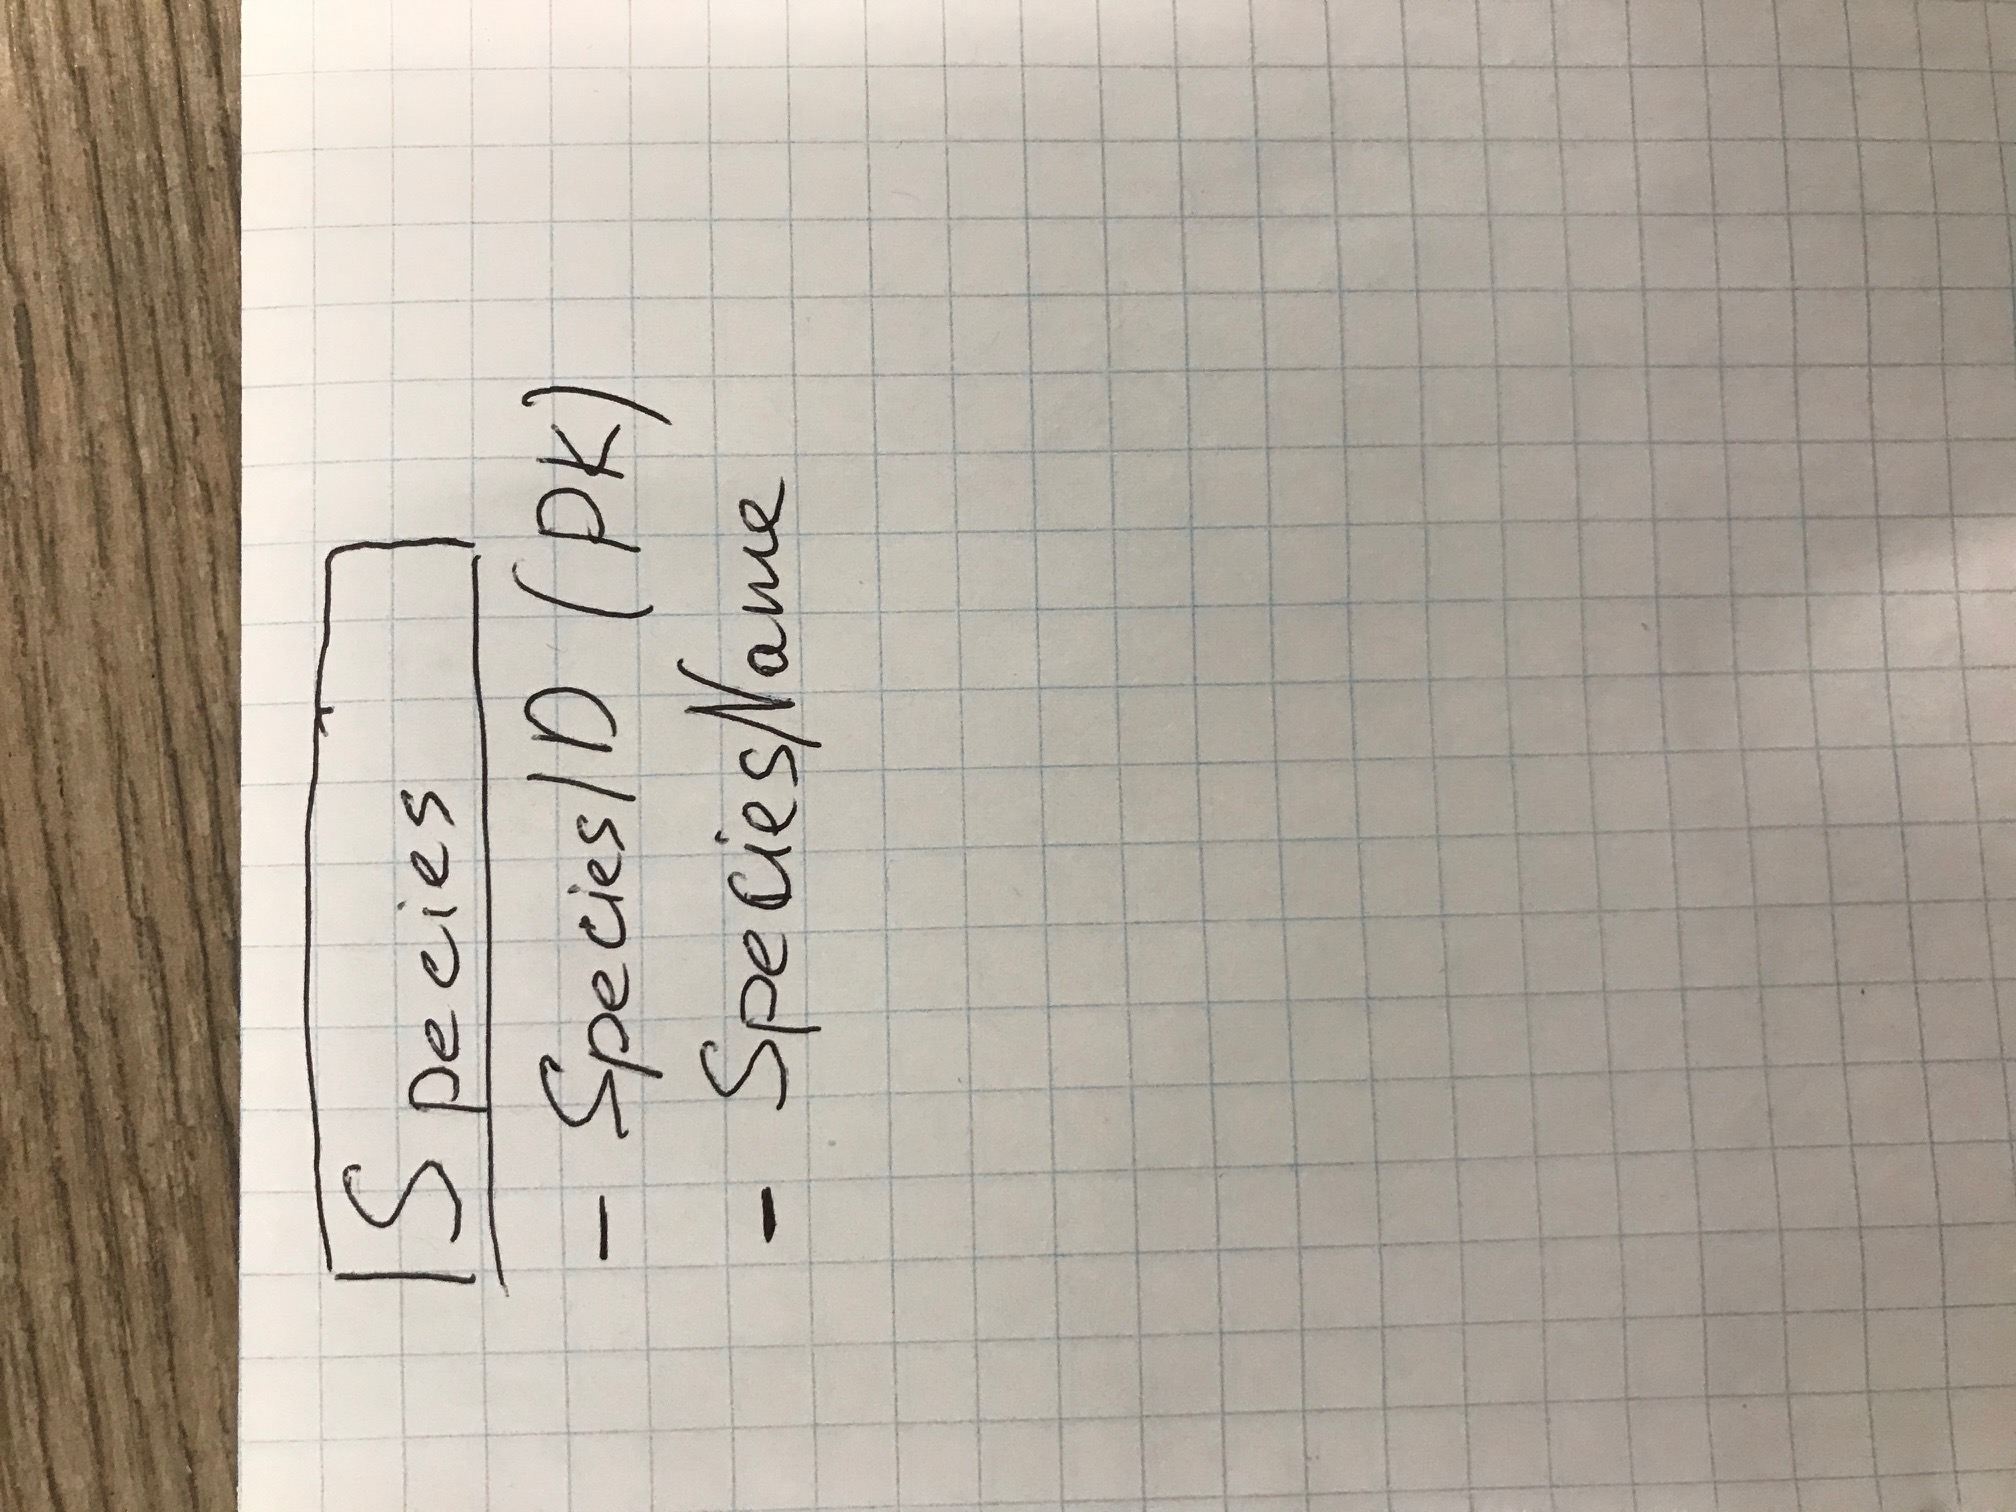 Species
- SpeciesID (PK)
- SpeciesName